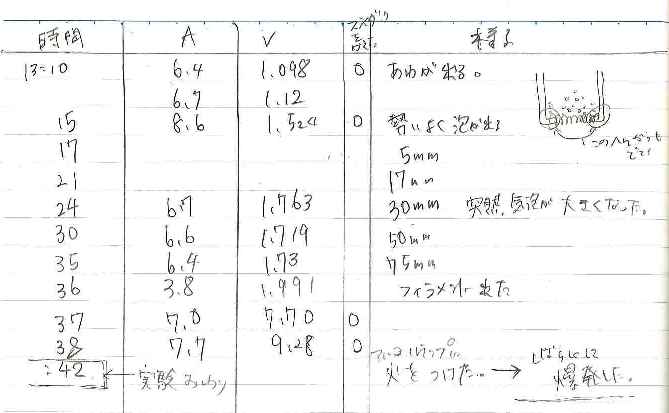 時間 A V 様子
13:10 6.4 1.098 0 あわが出る。
6.7 1.12
15 8.6 1.524 0 勢いよく泡が出る
17 5mm
21 17mm
24 6.7 1.763 30mm 突然、気泡が大きくなった。
30 6.6 1.719 50mm
35 6.4 1.73 75mm
36 3.8 1.991 フィラメント切れた
37 7.0 7.70 0
38 7.7 9.28 0 火をつけた。→ しばらくして
:42 ← 実験おわり 爆発した。